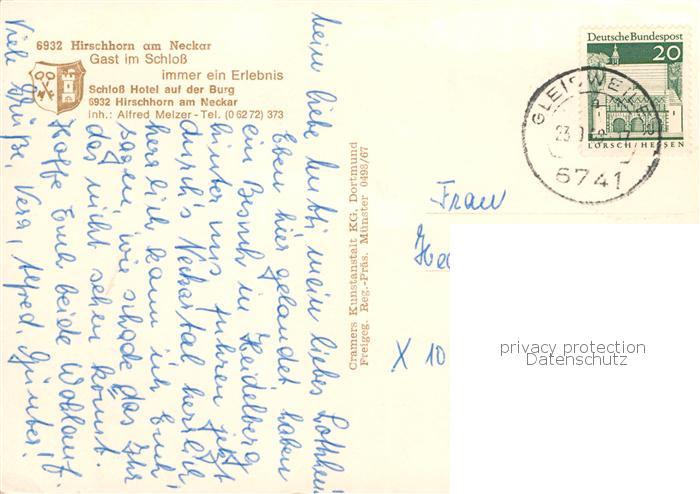 6932 Hirschhorn am Neckar
Gast im Schloß
immer ein Erlebnis
Schloß Hotel auf der Burg
6932 Hirschhorn am Neckar
Inh.: Alfred Melzer - Tel. (06272) 373
Mein liebe Mutti, mein liebes
Eben hier gelandet haben
ein Besuch in Heidelberg
hinter uns, fuhren jetzt
durch's Neckartal herrlich
herrlich kann ich Euch
sagen, wie schade das Ihr
das nicht sehen könnt.
Hoffe Euch beide Wohlauf.
Viele Grüße, Vera, Alfred, Günter!
Cramers Kunstanstalt KG, Dortmund
Freigeg. Reg.-Präs. Münster 0498/67
Deutsche Bundespost
20
LORSCH/HESSEN
GLEISWEILER
6741
Frau
X 10
privacy protection
Datenschutz